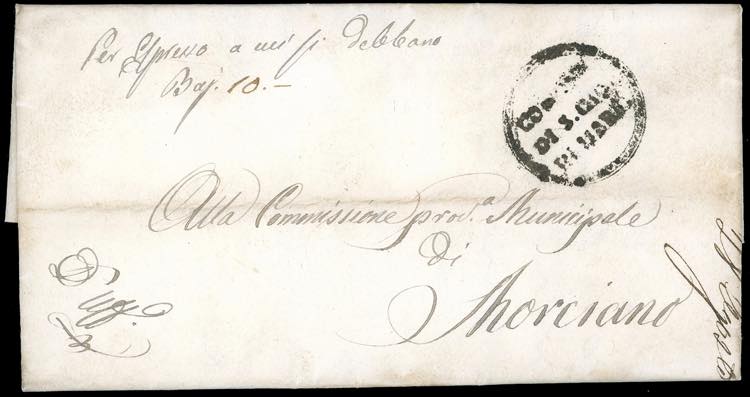 Per Espresso a cui si debbano
Baj. 10.—
DI S. GIO
DI MARE
Alla Commissione prov.a Municipale
di
Morciano